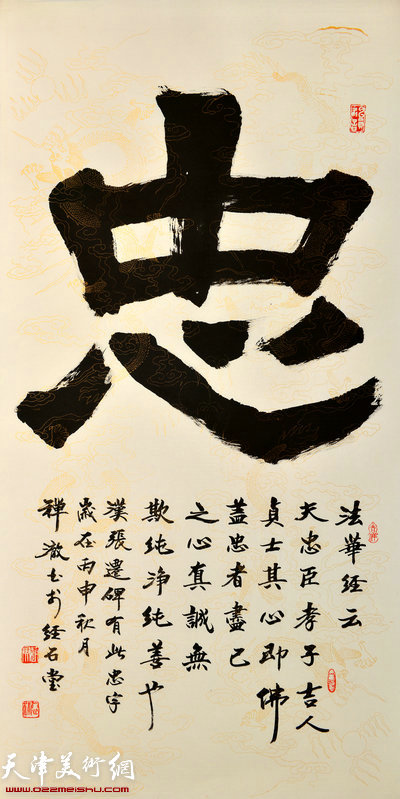 忠
法華經云
夫忠臣孝子吉人
貞士其心即佛
蓋忠者盡己
之心真誠無
欺純净純善也
漢張遷碑有此忠字
歲在丙申秋月
禅澈书于经石堂
天津美術網
www.022meishu.com